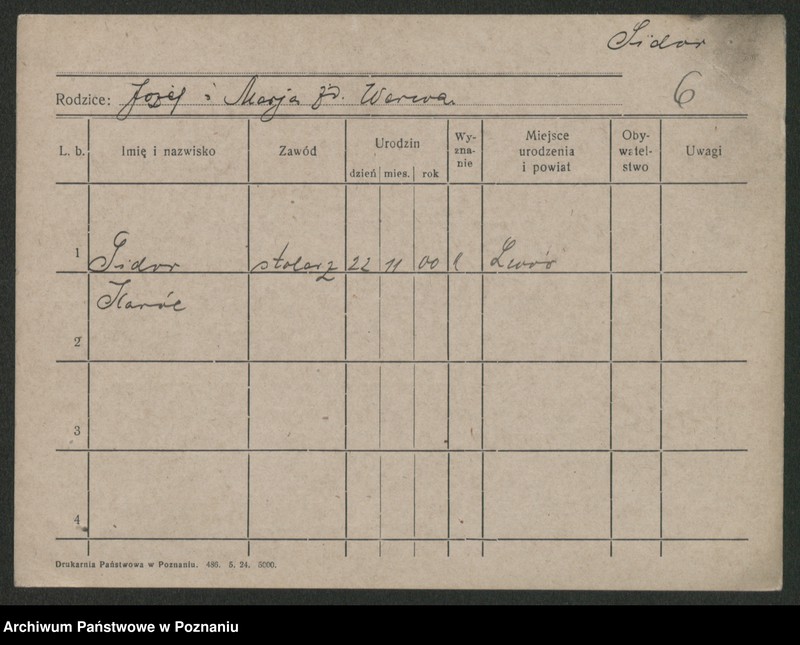 Sidor
Rodzice: Józef i Marja
6
L. b.
Imię i nazwisko
Zawód
Urodzin
dzień
mies.
rok
Wy-
zna-
nie
Miejsce
urodzenia
i powiat
Oby-
watel-
stwo
Uwagi
1 Sidor stolarz 22 11 00 Lwów
Karól
2
3
4
Drukarnia Państwowa w Poznaniu. 486. 5. 24. 5000.
Archiwum Państwowe w Poznaniu